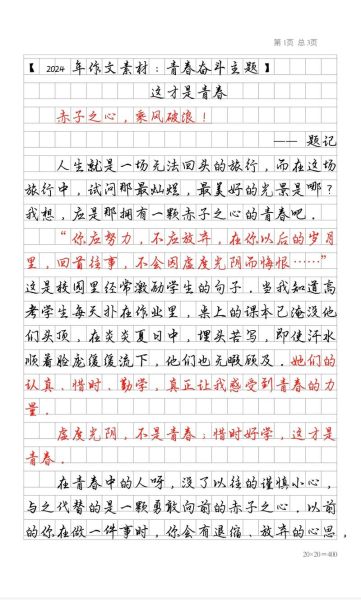 第1页 总3页
【 2024 年作文素材：青春奋斗主题 】
这才是青春
赤子之心，乘风破浪！
—— 题记
人生就是一场无法回头的旅行，而在这场
旅行中，试问那最灿烂，最美好的光景是哪？
我想，应是那拥有一颗赤子之心的青春吧．
“你应努力，不应放弃，在你以后的岁月
里，回首往事，不会因虚度光阴而悔恨……”
这是校园里经常激励学生的句子，当我知道高
考学生每天扑在作业里，桌上的课本已淹没他
们头顶，在炎炎夏日中，埋头苦写，即使汗水
顺着脸庞缓缓流下，他们也无暇顾及．她们的
认真、惜时、勤学，真正让我感受到青春的力
量．
虚度光阴，不是青春；惜时好学，这才是
青春．
在青春中的人呀，没了以往的谨慎小心，
与之代替的是一颗勇敢向前的赤子之心．以前
的你在做一件事时，你会有退缩、放弃的心思，
20×20=400